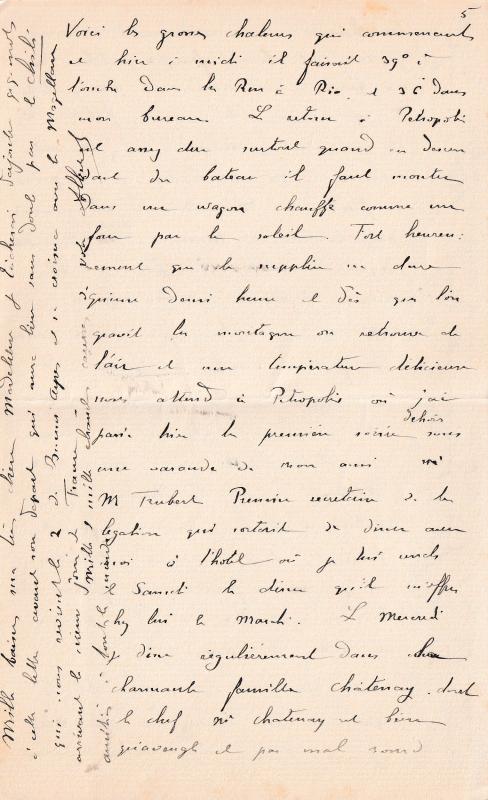 5
Voici les grosses chaleurs qui commencent
et hier à midi il faisait 39° à
l'ombre dans les Rues à Rio et 36 dans
mon bureau. Le retour à Petropolis
est assez dur surtout quand en descen
dant du bateau il faut monter
dans un wagon chauffé comme un
four par le soleil. Fort heureu:
sement que le supplice ne dure
qu'une demi heure et dès que l'on
gravit les montagnes on retrouve de
l'air et une température délicieuse
nous attend à Petropolis où j'ai
passé hier la première soirée dehors sous
une varande de mon ami
M Trubert Premier secrétaire de la
légation qui sortait de dîner avec
moi à l'hôtel où je lui rends
le Samedi le dîner qu'il m'offre
chez lui le Mardi. Le Mercredi
je dîne régulièrement dans la
charmante famille châtenay dont
le chef Mr chatenay est bien
qu'aveugle et pas mal sourd
Mille baisers ma très chère Madeleine j'
à cette lettre avant son départ qui aura lieu sans doute par le Chili
qui nous revient le 2 de Buenos Ayres et se croisera avec le Magellan
arrivant le même jour de France
Mille et mille choses
amitiés à toute la